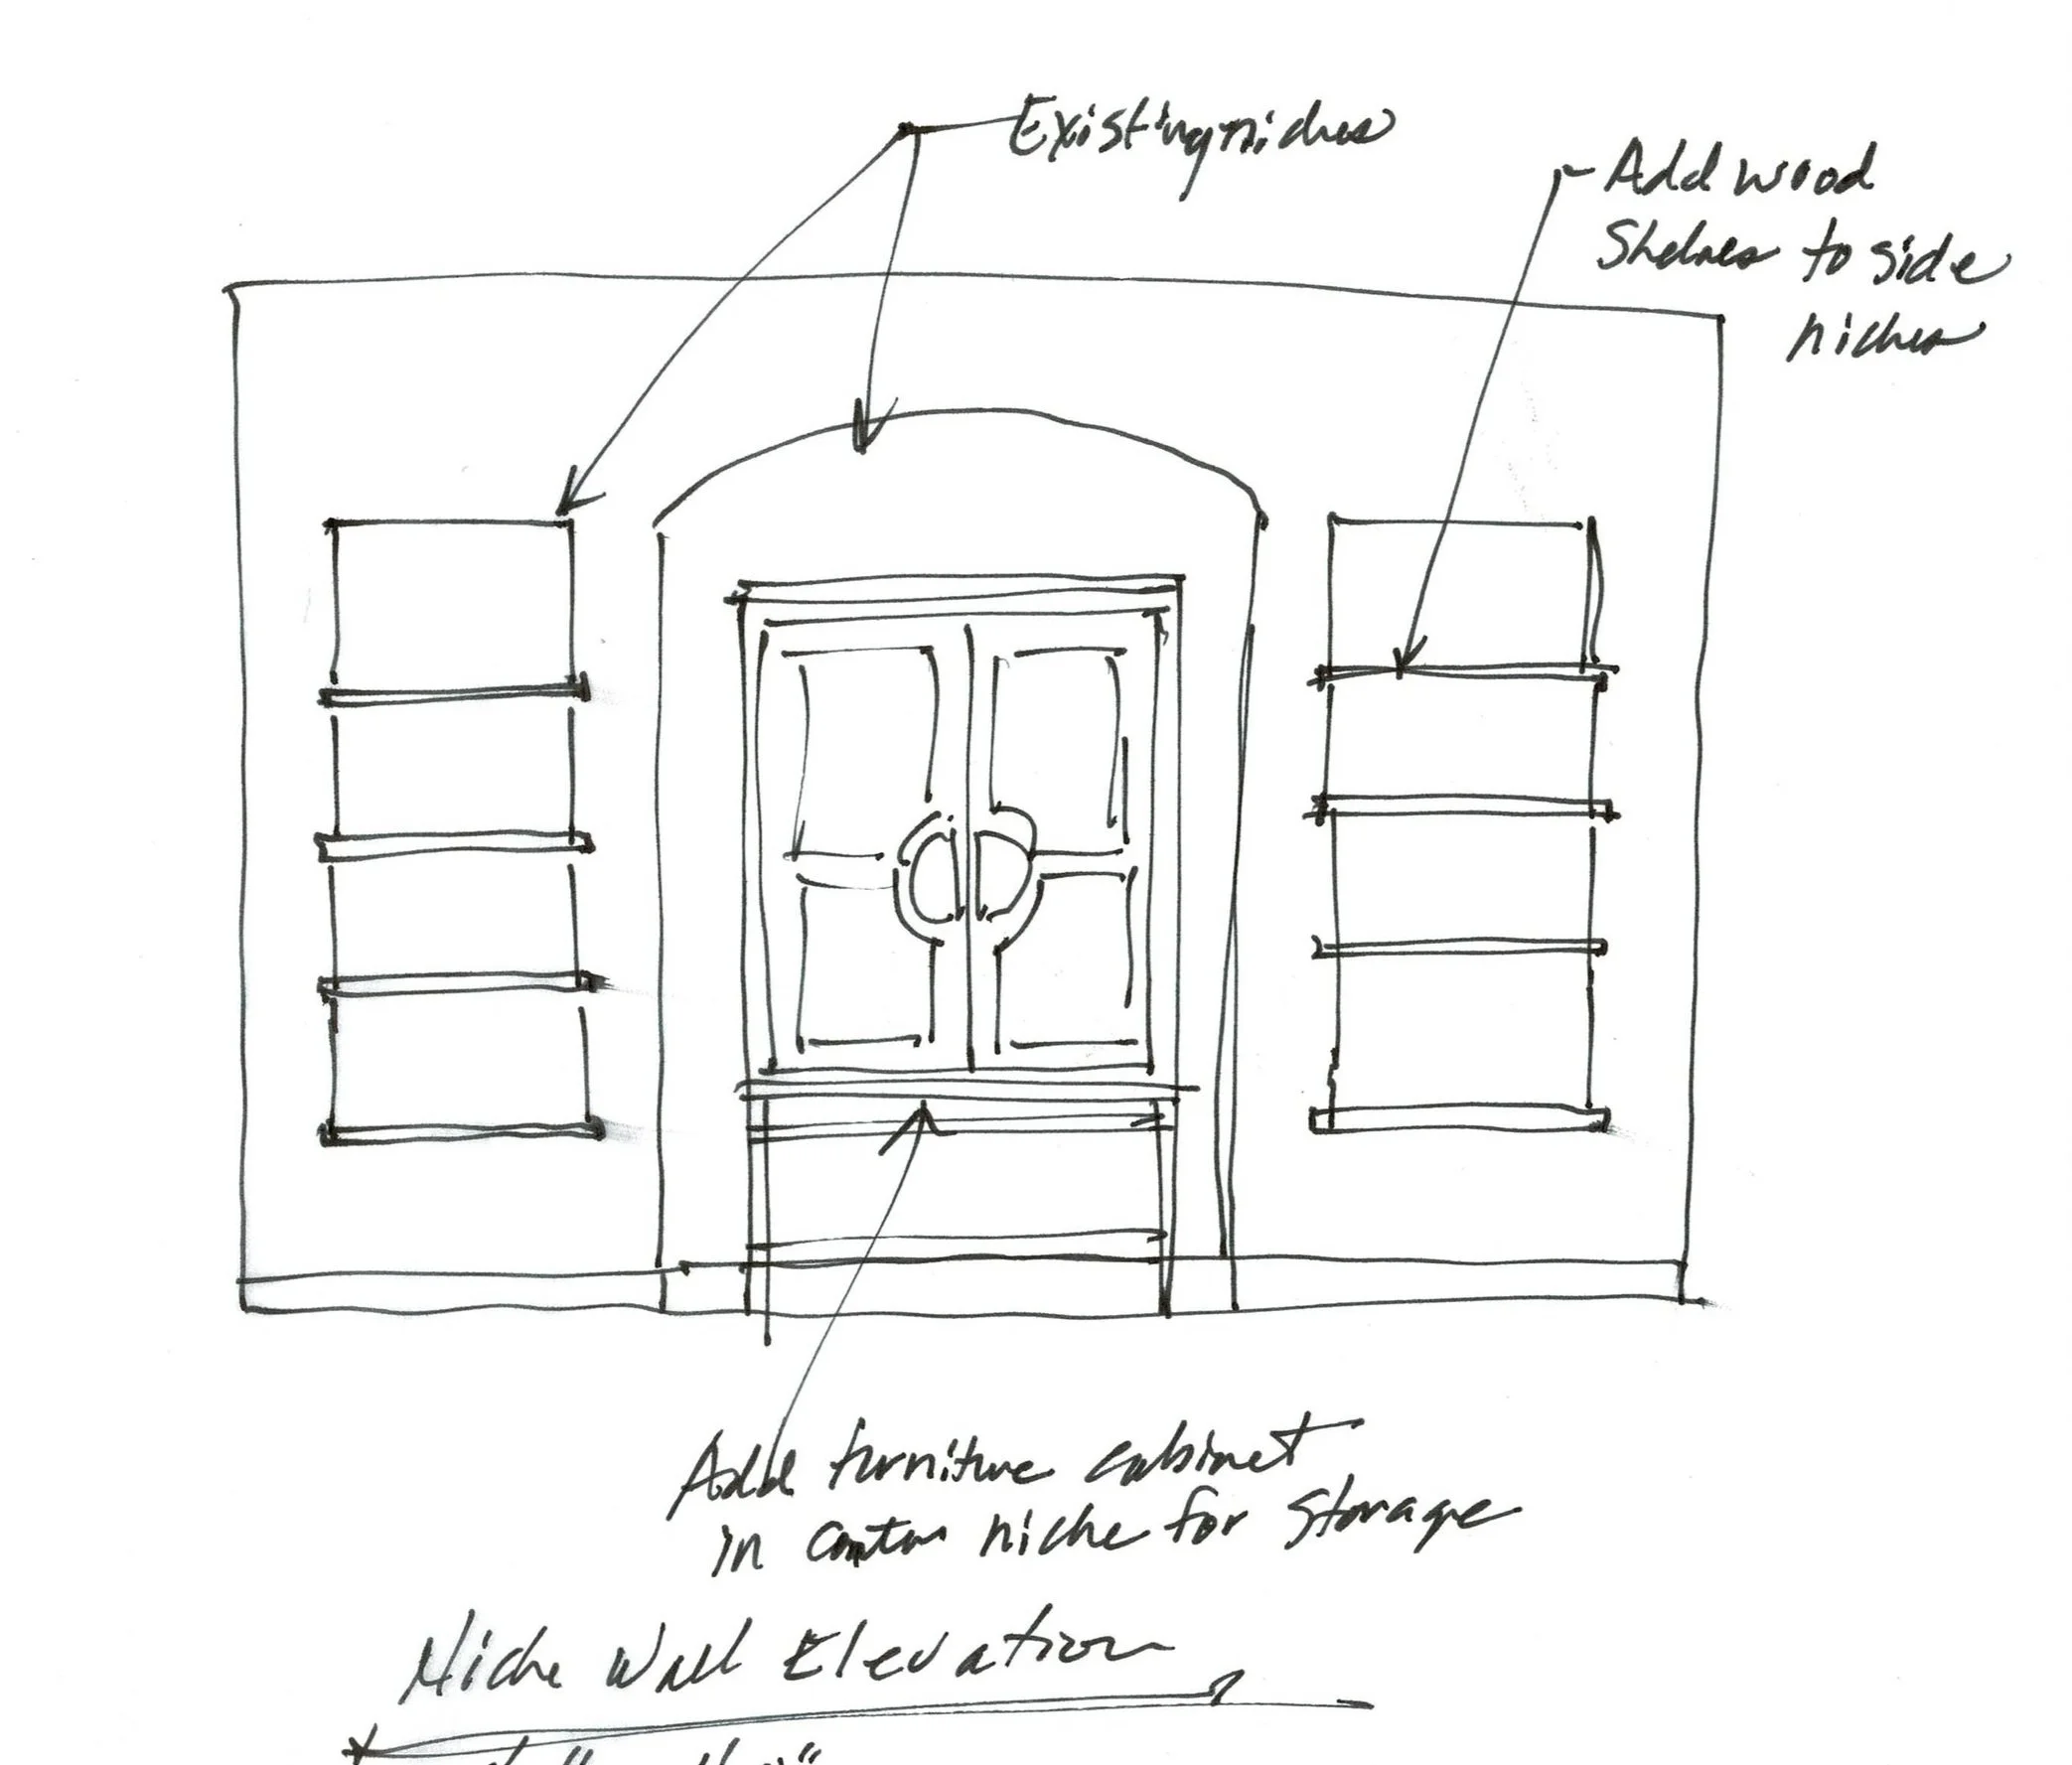 Existing niches
Add wood
Shelves to side
niches
Add furniture cabinet
in center niche for storage
Niche Wall Elevation